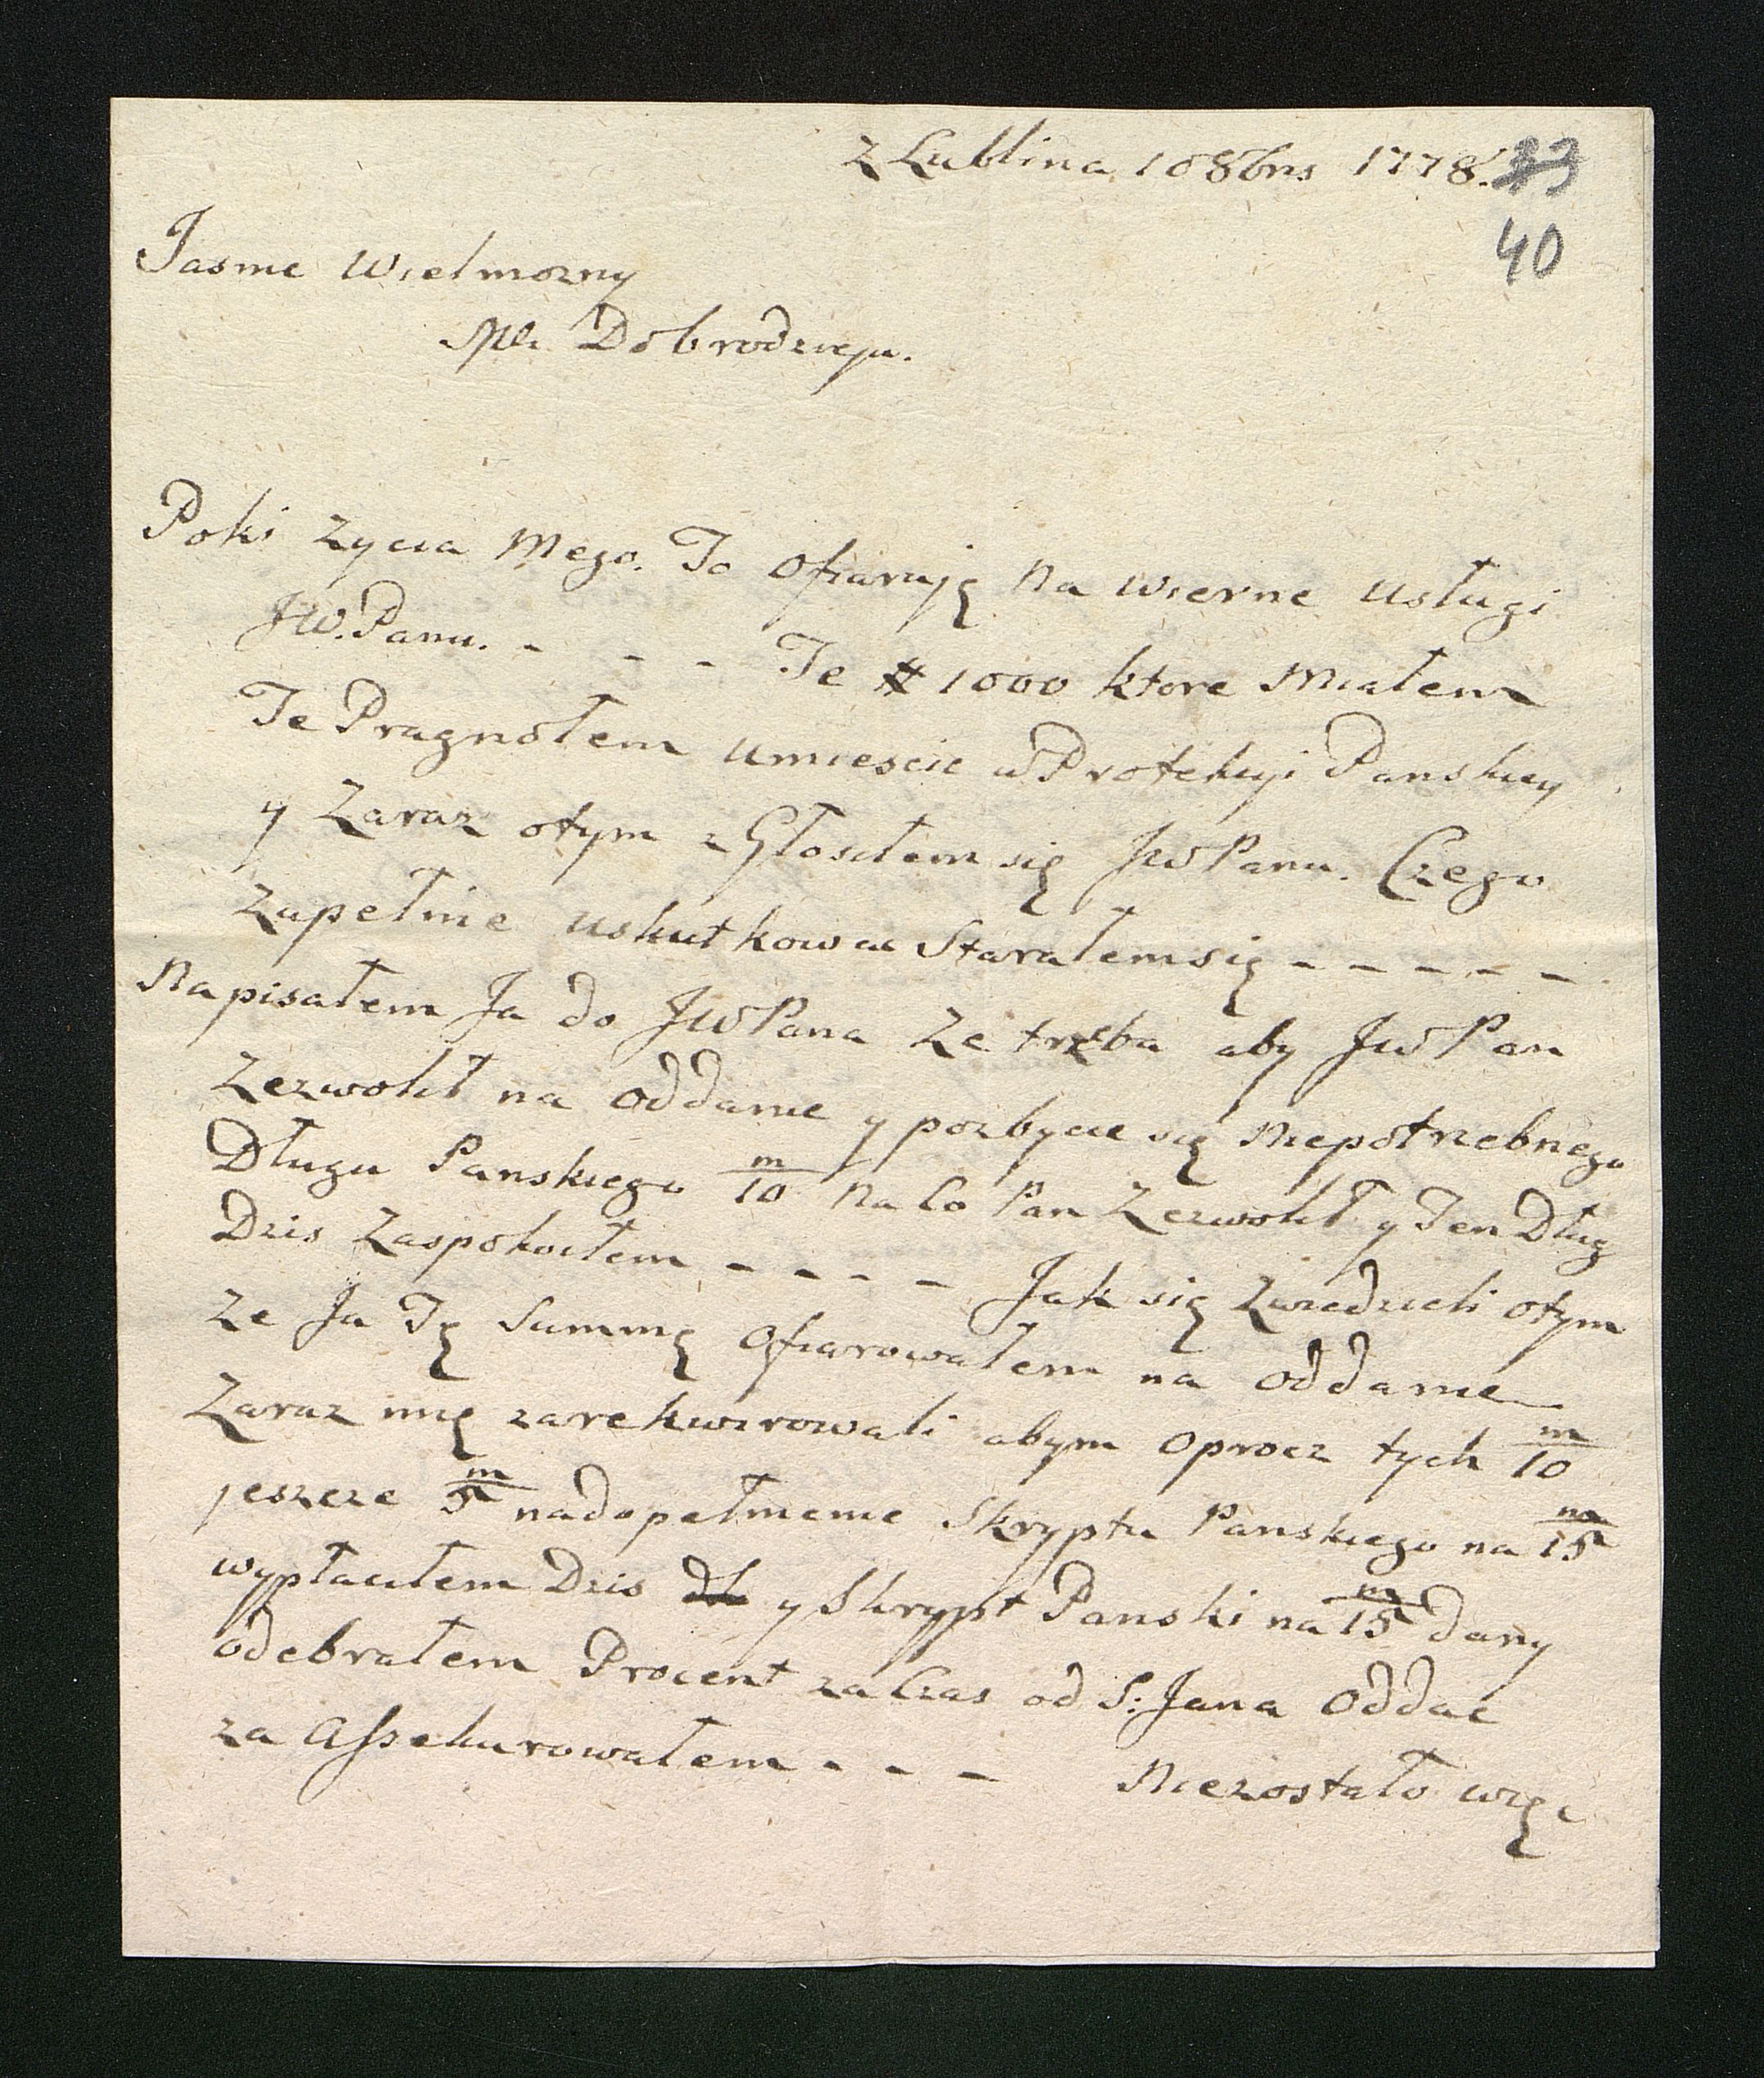 z Lublina 10 8bris 1778. 33
40
Jasnie Wielmozny
Mci Dobrodzieju.
Poki zycia Mego. To Ofiaruję na wierne usługi
JW. Panu. - - - Te # 1000 ktore Miałem
Te Pragnołem umiescic w Protekcyi Panskiey
y Zaraz otym zGłosiłem się JWPanu. Czego
zupełnie uskutkowac Starałemsię - - - - -
Napisałem Ja do JWPana Ze trzeba aby JWPan
Zezwolił na Oddanie y pozbycie się Niepotrzebnego
Długu Panskiego m/10 Na Co Pan Zezwolił y Ten Dług
Dzis Zaspokoiłem - - - - Jak się Zwiedzieli otym
Ze Ja Tę Summę Ofiarowałem na Oddanie
Zaraz mię zarekwirowali abym oprocz tych m/10
jeszcze m/5 nadopełnienie Skryptu Panskiego na m/15
wypłaciłem Dzis y Skrypt Panski na m/15 dany
odebrałem Procent za Czas od S: Jana Oddac
za Assekurowałem - - - Niezostało więc